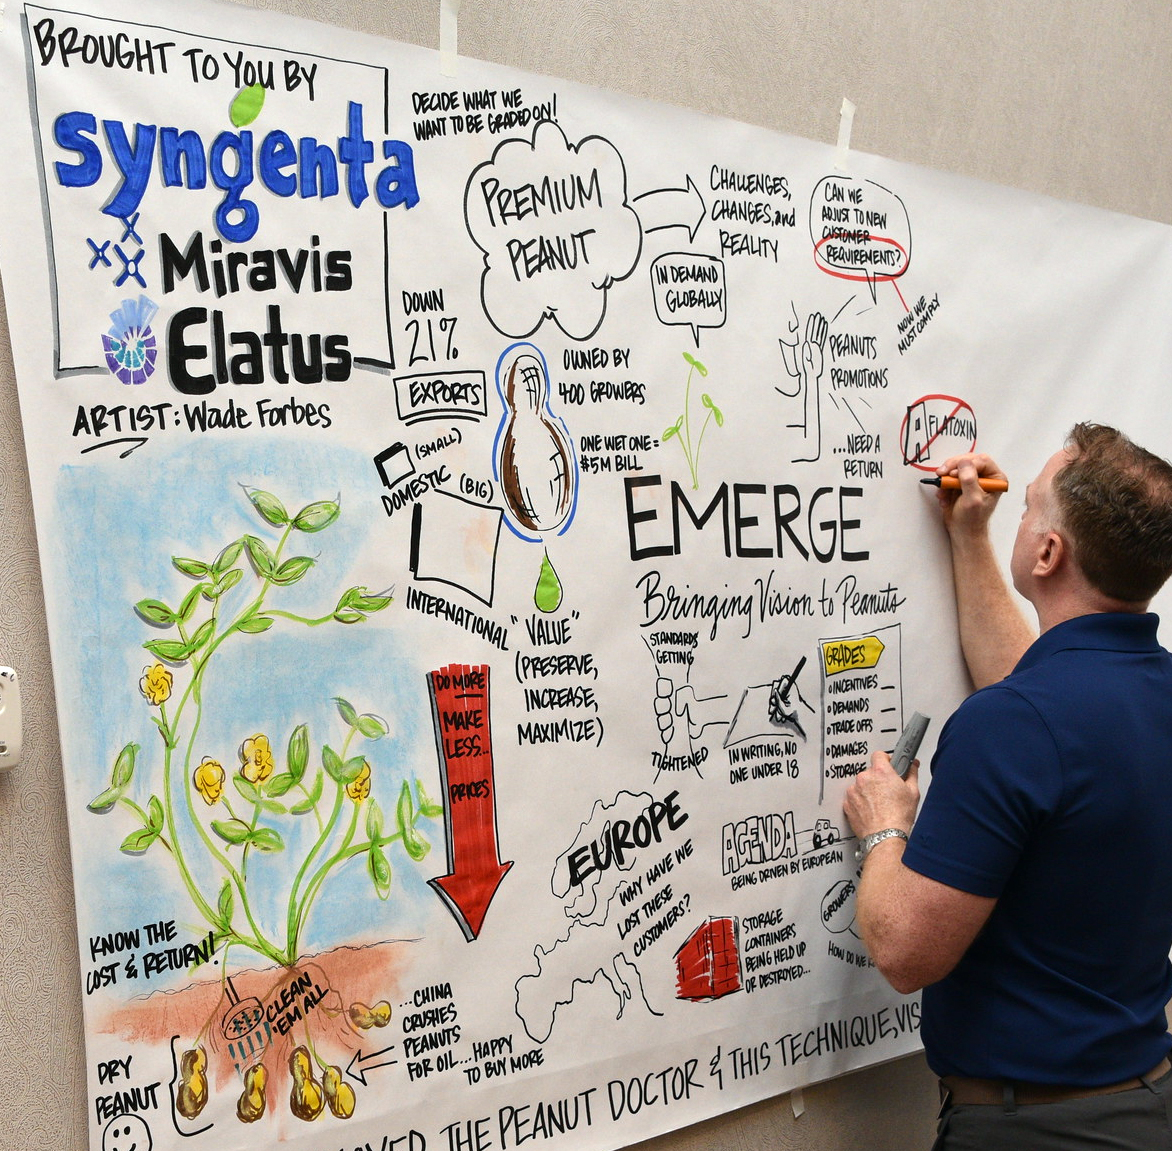 BROUGHT TO YOU BY
syngenta
Miravis
Elatus
ARTIST: Wade Forbes
DECIDE WHAT WE
WANT TO BE GRADED ON!
PREMIUM
PEANUT
CHALLENGES,
CHANGES, and
REALITY
CAN WE
ADJUST TO NEW
CUSTOMER
REQUIREMENTS?
NOW WE
MUST COMPLY
IN DEMAND
GLOBALLY
DOWN
21%
EXPORTS
(SMALL)
DOMESTIC
(BIG)
INTERNATIONAL
OWNED BY
400 GROWERS
ONE WET ONE =
$5M BILL
"VALUE"
(PRESERVE,
INCREASE,
MAXIMIZE)
PEANUTS
PROMOTIONS
...NEED A
RETURN
FLATOXIN
EMERGE
Bringing Vision to Peanuts
STANDARDS
GETTING
TIGHTENED
IN WRITING, NO
ONE UNDER 18
GRADES
INCENTIVES
DEMANDS
TRADE OFFS
DAMAGES
STORAGE
DO MORE
MAKE
LESS...
PRICES
EUROPE
WHY HAVE WE
LOST THESE
CUSTOMERS?
AGENDA
BEING DRIVEN BY EUROPEAN
GROWERS
HOW DO WE
STORAGE
CONTAINERS
BEING HELD UP
OR DESTROYED...
KNOW THE
COST & RETURN!
CLEAN
'EM ALL
DRY
PEANUT
...CHINA
CRUSHES
PEANUTS
FOR OIL...HAPPY
TO BUY MORE
THE PEANUT DOCTOR & THIS TECHNIQUE, VIS